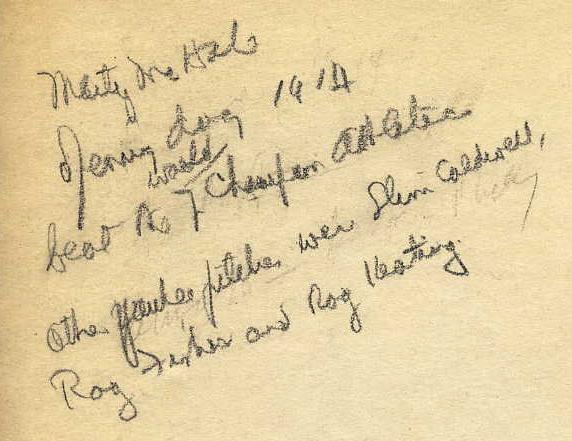 Marty McHale
Opening day 1914
world
beat the Champion Athletics
Other Yankee pitchers were Slim Caldwell,
Ray Fisher and Ray Keating.